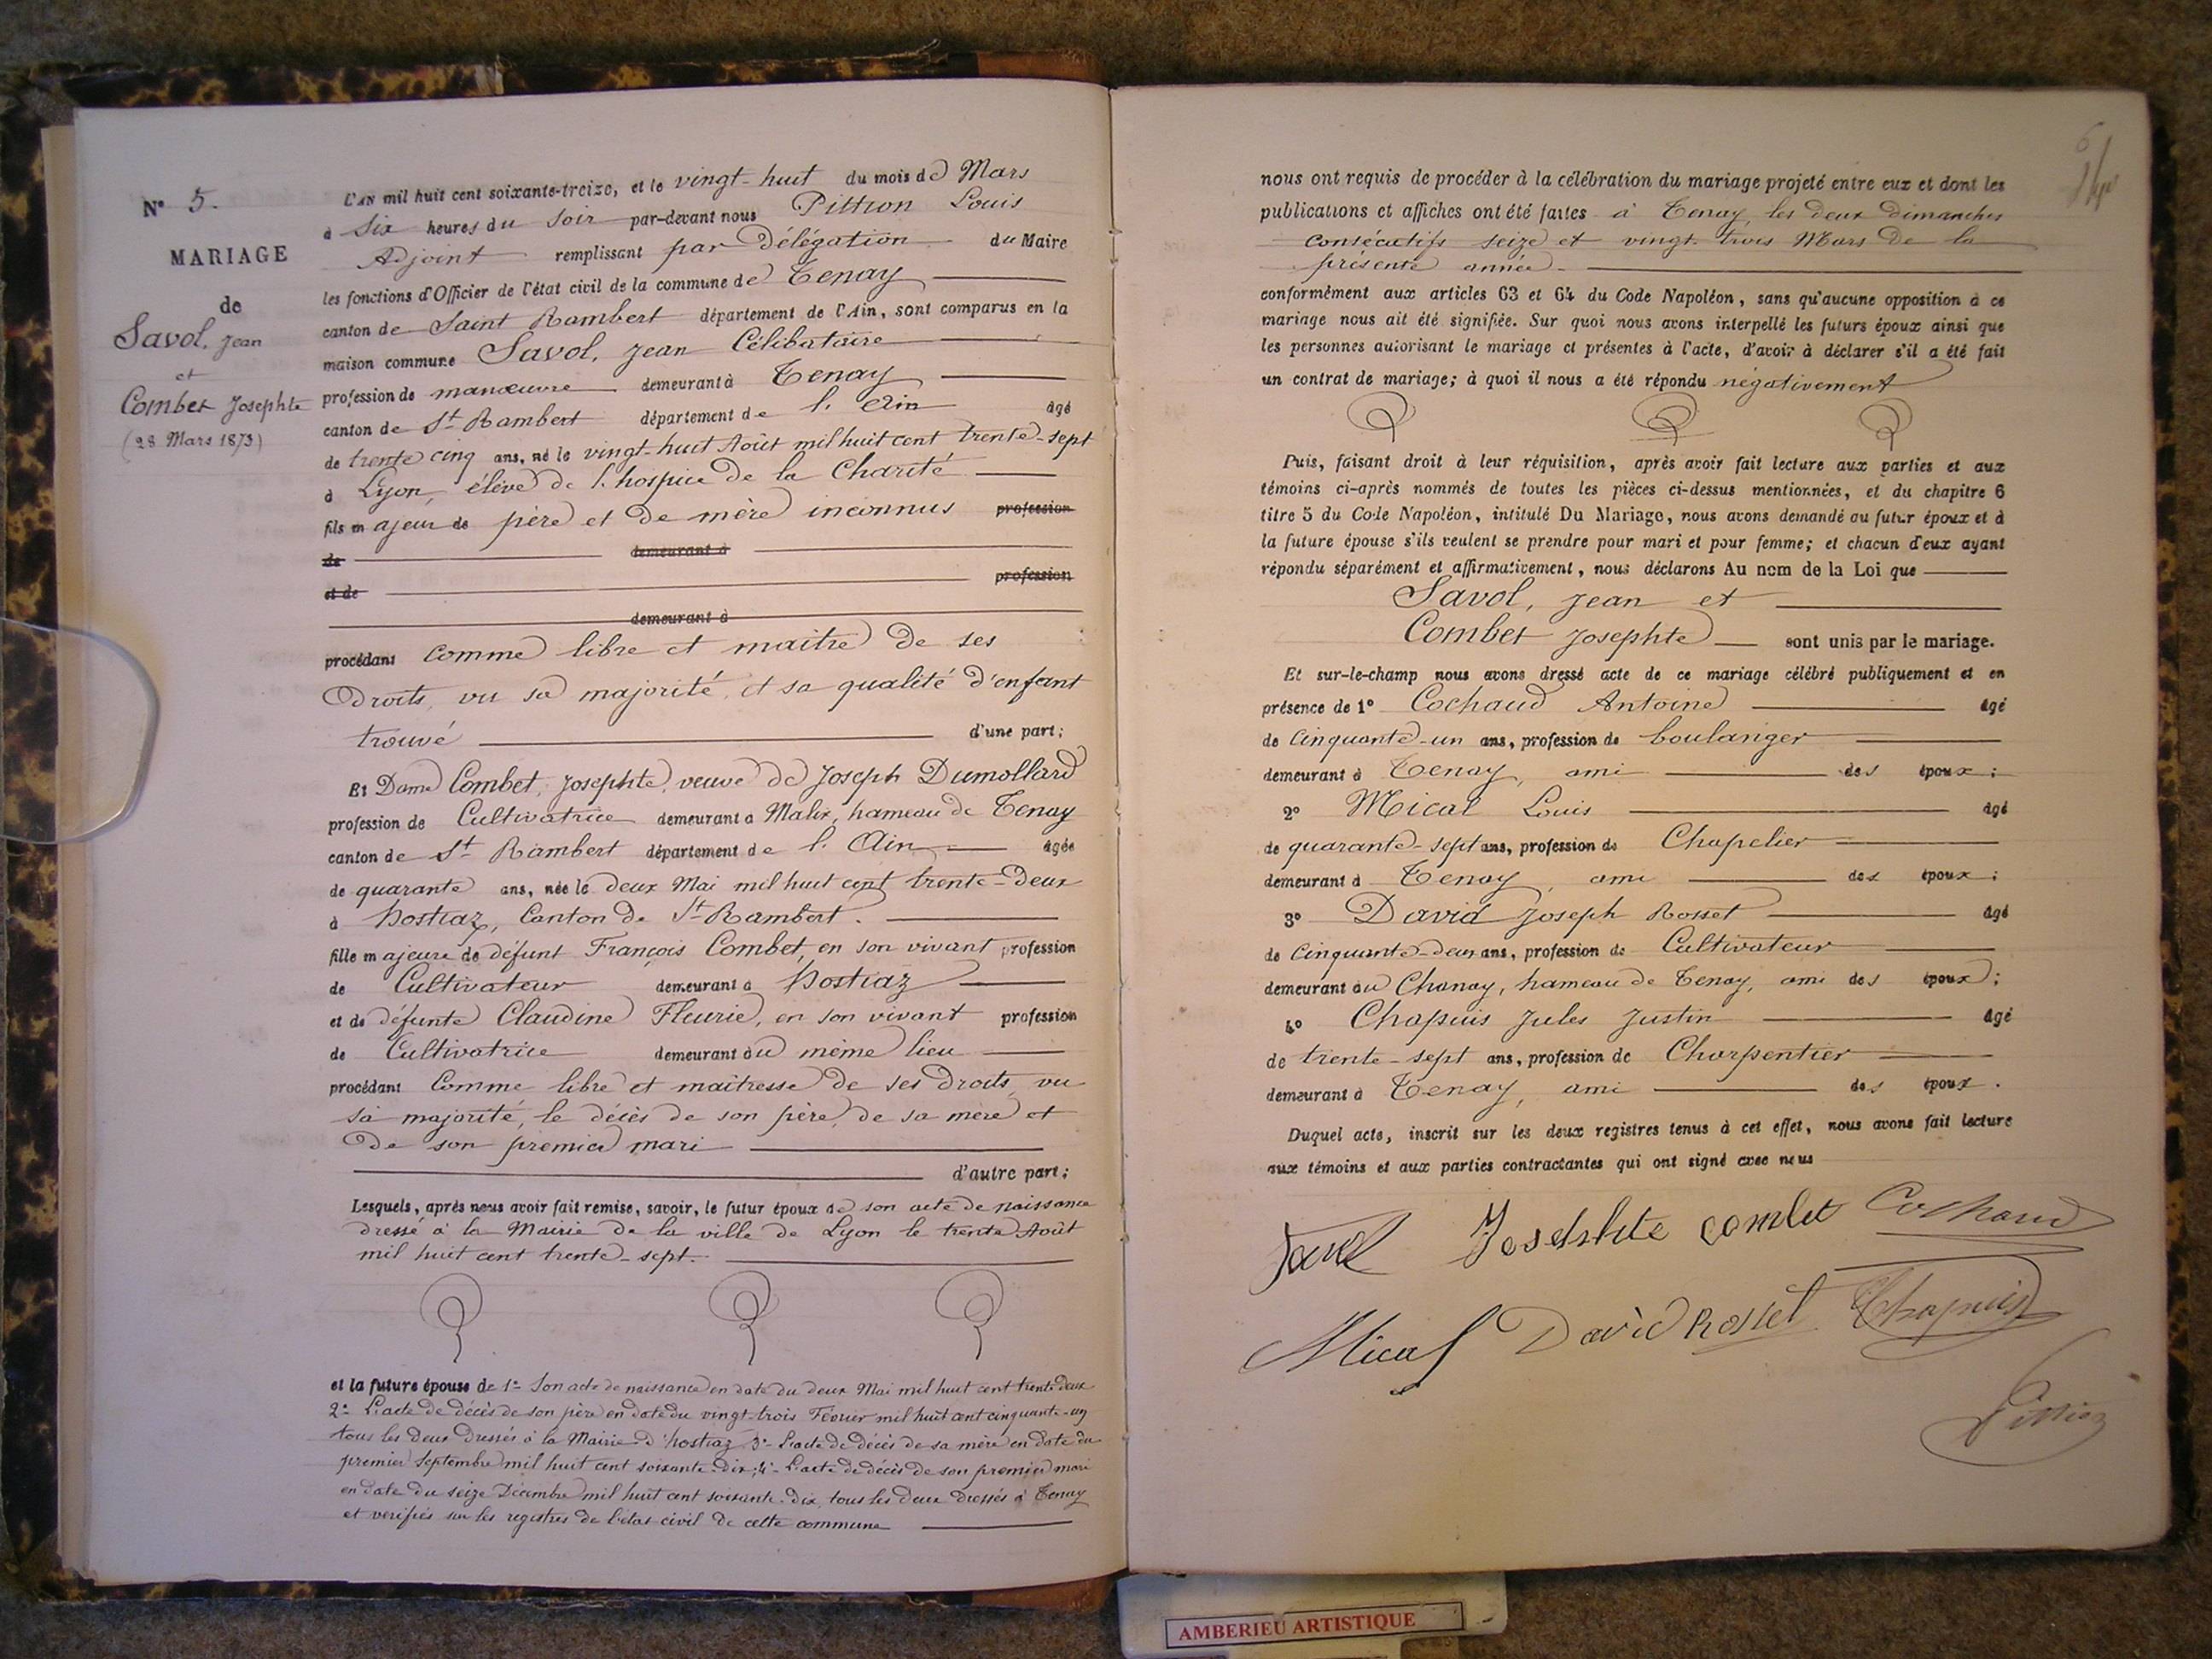 N° 5.
MARIAGE
de
Savol, Jean
et
Combet Josephte
(28 Mars 1873)
L'an mil huit cent soixante-treize, et le vingt-huit du mois de Mars
à Six heures du Soir par-devant nous Pittion Louis
Adjoint remplissant par Délégation du Maire
les fonctions d'Officier de l'état civil de la commune de Tenay
canton de Saint Rambert département de l'Ain, sont comparus en la
maison commune Savol, Jean Célibataire
profession de manœuvre demeurant à Tenay
canton de St Rambert département de l'Ain âgé
de trente cinq ans, né le vingt-huit Août mil huit cent trente-sept
à Lyon, élève de l'hospice de la Charité
fils majeur de père et de mère inconnus profession
de demeurant à
et de profession
demeurant à
procédant comme libre et maitre de ses
Droits, vu sa majorité, et sa qualité d'enfant
trouvé d'une part;
Et Dame Combet, Josephte, veuve de Joseph Dumollard
profession de Cultivatrice demeurant à Malix, hameau de Tenay
canton de St Rambert département de l'Ain âgée
de quarante ans, née le deux Mai mil huit cent trente-deux
à hostiaz, Canton de St-Rambert.
fille majeure de défunt François Combet, en son vivant profession
de Cultivateur demeurant à hostiaz
et de défunte Claudine Fleurie, en son vivant profession
de Cultivatrice demeurant au même lieu
procédant Comme libre et maitresse de ses droits, vu
sa majorité, le décès de son père, de sa mère et
de son premier mari
d'autre part;
Lesquels, après nous avoir fait remise, savoir, le futur époux de son acte de naissance
dressé à la Mairie de la ville de Lyon le trente Août
mil huit cent trente-sept.
et la future épouse de 1° Son acte de naissance en date du deux Mai mil huit cent trente deux
2° L'acte de décès de son père en date du vingt-trois Février mil huit cent cinquante-un
tous les deux dressés à la Mairie d'hostiaz 3° L'acte de décès de sa mère en date du
premier Septembre mil huit cent soixante-dix; 4° L'acte de décès de son premier mari
en date du seize Décembre mil huit cent soixante-dix, tous les deux dressés à Tenay
et vérifiés sur les registres de l'état-civil de cette commune
6
nous ont requis de procéder à la célébration du mariage projeté entre eux et dont les
publications et affiches ont été faites à Tenay, les deux dimanches
consécutifs seize et vingt-trois Mars de la
présente année.
conformément aux articles 63 et 64 du Code Napoléon, sans qu'aucune opposition à ce
mariage nous ait été signifiée. Sur quoi nous avons interpellé les futurs époux ainsi que
les personnes autorisant le mariage et présentes à l'acte, d'avoir à déclarer s'il a été fait
un contrat de mariage; à quoi il nous a été répondu négativement
Puis, faisant droit à leur réquisition, après avoir fait lecture aux parties et aux
témoins ci-après nommés de toutes les pièces ci-dessus mentionnées, et du chapitre 6
titre 5 du Code Napoléon, intitulé Du Mariage, nous avons demandé au futur époux et à
la future épouse s'ils veulent se prendre pour mari et pour femme; et chacun d'eux ayant
répondu séparément et affirmativement, nous déclarons Au nom de la Loi que
Savol, Jean et
Combet Josephte sont unis par le mariage.
Et sur-le-champ nous avons dressé acte de ce mariage célébré publiquement et en
présence de 1° Cochaud Antoine âgé
de Cinquante-un ans, profession de boulanger
demeurant à Tenay, ami des époux;
2° Mical Louis âgé
de quarante-sept ans, profession de Chapelier
demeurant à Tenay, ami des époux;
3° David Joseph Rosset âgé
de Cinquante-deux ans, profession de Cultivateur
demeurant au Chanay, hameau de Tenay, ami des époux;
4° Chapuis Jules Justin âgé
de trente-sept ans, profession de Charpentier
demeurant à Tenay, ami des époux.
Duquel acte, inscrit sur les deux registres tenus à cet effet, nous avons fait lecture
aux témoins et aux parties contractantes qui ont signé avec nous
Savol Josephte combet Cochaud
Mical David Rosset Chapuis
Pittion
AMBERIEU ARTISTIQUE